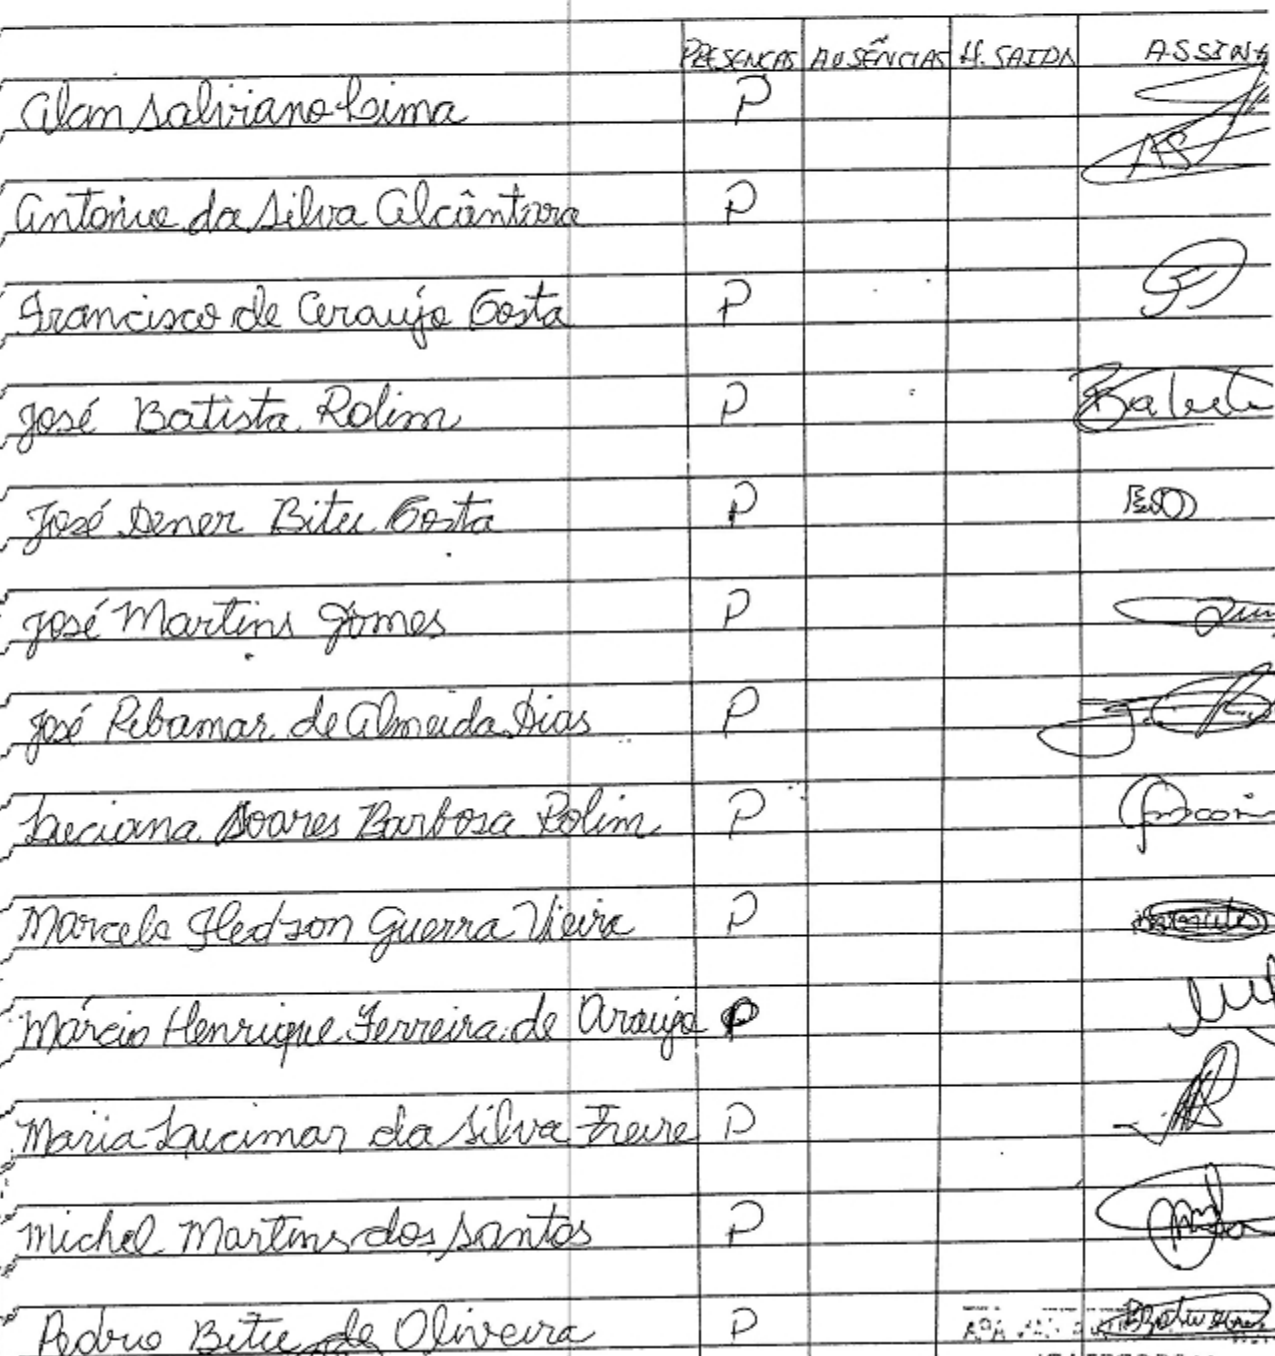 PRESENÇAS AUSÊNCIAS H. SAIDA ASSINA
Alan Salviano Lima P AS
Antonio da Silva Alcântara P
Francisco de Araujo Costa P
José Batista Rolim P Batista
José Dener Biteu Costa P
José Martins Gomes P
José Ribamar de Almeida Dias P
Luciana Soares Barbosa Rolim P
Marcelo Hedson Guerra Vieira P
Márcio Henrique Ferreira de Araujo P
Maria Lucimar da Silva Freire P
Michel Martins dos Santos P
Pedro Biteu de Oliveira P